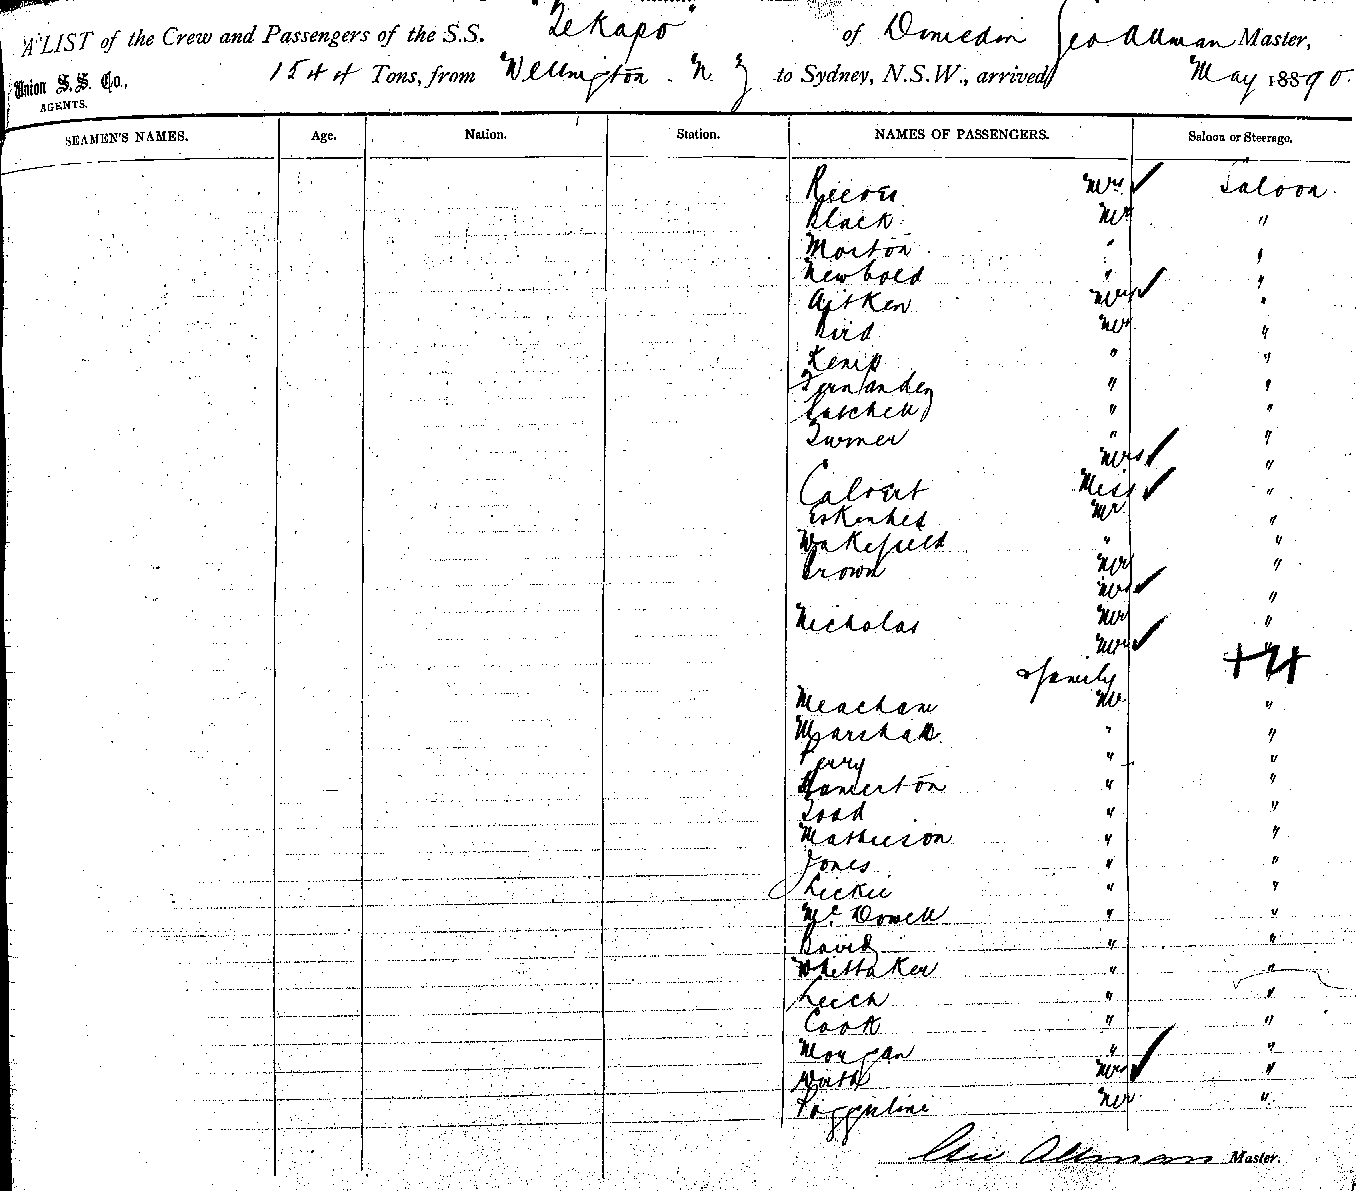 A LIST of the Crew and Passengers of the S.S. "Tekapo" of Dunedin Geo Allman Master,
Union S.S. Co., AGENTS.
1544 Tons, from Wellington . N. Z to Sydney, N.S.W., arrived May 18890.
SEAMEN'S NAMES. Age. Nation. Station. NAMES OF PASSENGERS. Saloon or Steerage.
Reeves Mrs ✓ Saloon
Black Mr "
Morton " "
Newbold " "
Aitken Mrs ✓ "
Bird Mr "
Kemp " "
Fernandez " "
Satchell " "
Turner " "
Mrs ✓ "
Calvert Miss ✓ "
Mr "
Wakefield " "
Brown Mr "
Mrs ✓ "
Nicholas Mr "
Mrs ✓ "
& family +4
Meacham Mr "
Marshall " "
Perry " "
Hamerton " "
Toad " "
Mathieson " "
Jones " "
Leckie " "
McDowell " "
David " "
Whittaker " "
Leech " "
Cook " "
Morgan " "
Mrs ✓ "
Mr "
Geo Allman Master.